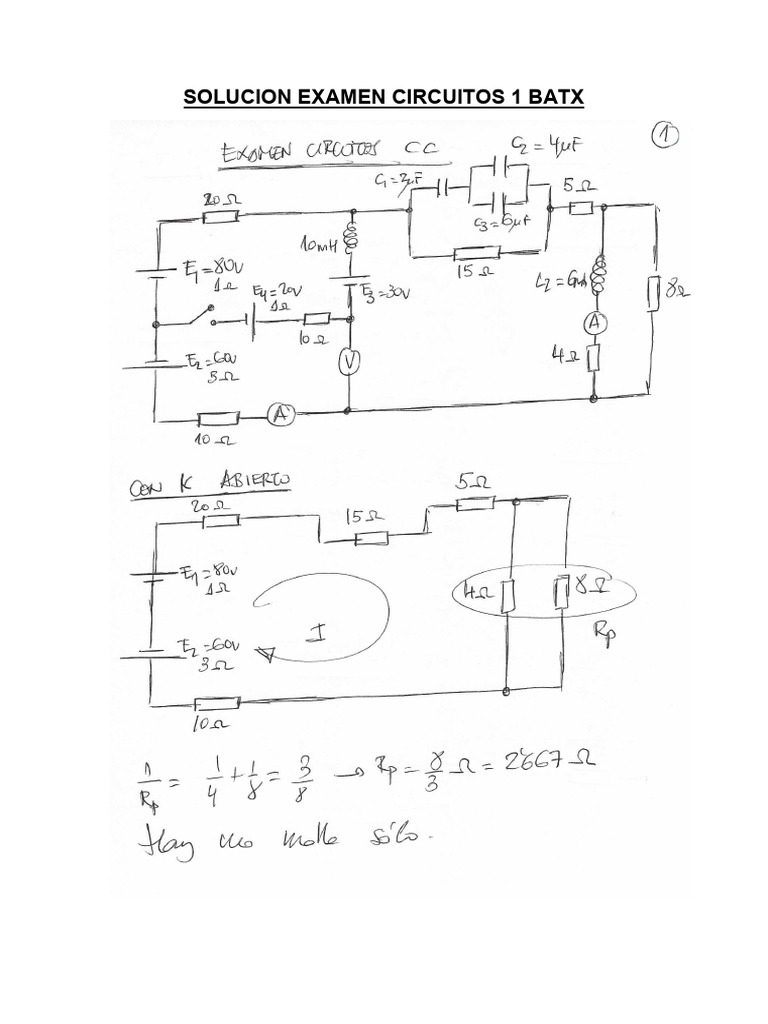 SOLUCION EXAMEN CIRCUITOS 1 BATX
1
EXAMEN CIRCUITOS CC
C₂=4μF
C₁=3μF
C₃=6μF
20Ω
5Ω
10mH
15Ω
E₁=80V
1Ω
E₄=20V
1Ω
E₃=30V
L₂=6mH
8Ω
10Ω
A
E₂=60V
3Ω
V
4Ω
10Ω
A
CON K ABIERTO
20Ω
15Ω
5Ω
E₁=80V
1Ω
4Ω
8Ω
I
E₂=60V
3Ω
Rp
10Ω
1/Rp = 1/4 + 1/8 = 3/8 → Rp = 8/3 Ω = 2'667 Ω
Hay una malla sólo.